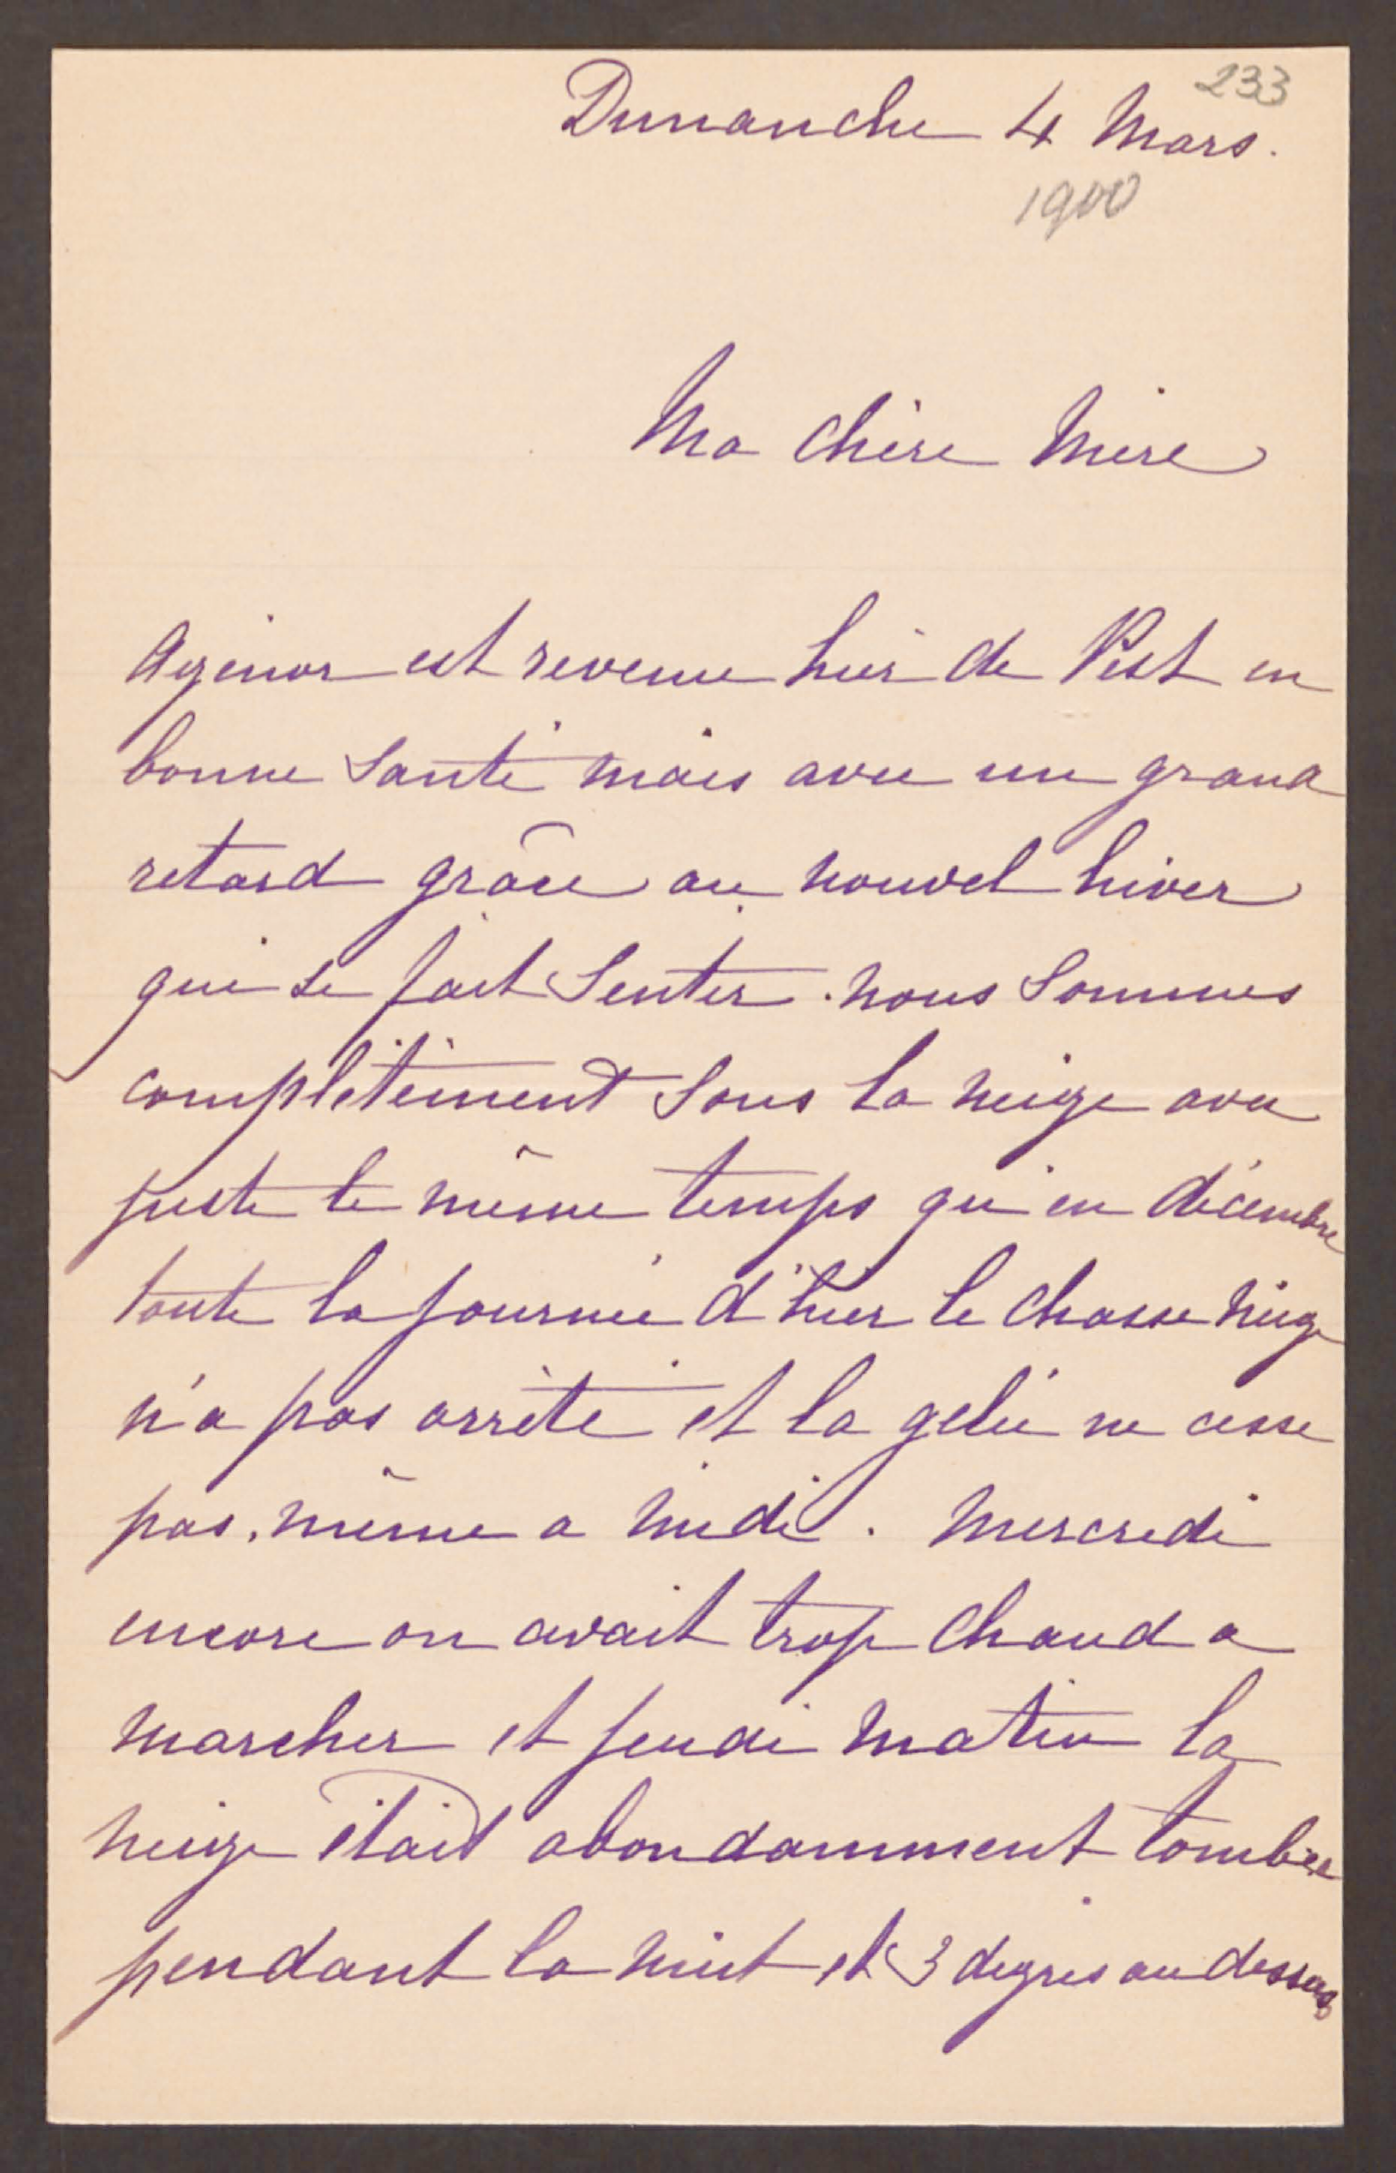 233
Dimanche 4 Mars.
1900
Ma chère Mère
Agénor est revenu hier de Pest en
bonne santé mais avec un grand
retard grâce au nouvel hiver
qui se fait sentir. nous sommes
complètement sous la neige avec
juste le même temps qu'en décembre
toute la journée d'hier le chasse neige
n'a pas arrêté et la gelée ne cesse
pas, même a midi. Mercredi
encore on avait trop chaud a
marcher et jeudi matin la
neige était abondamment tombée
pendant la nuit et 3 degrés au dessus